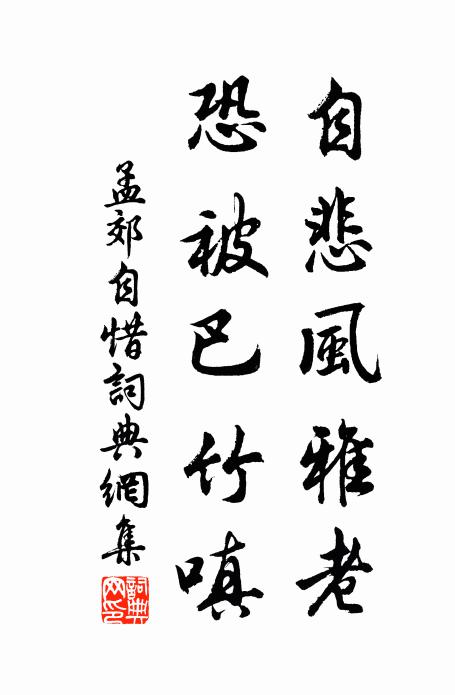 自悲風雅老
恐被巴竹嗔
孟郊自惜詞典網集
詞典網印